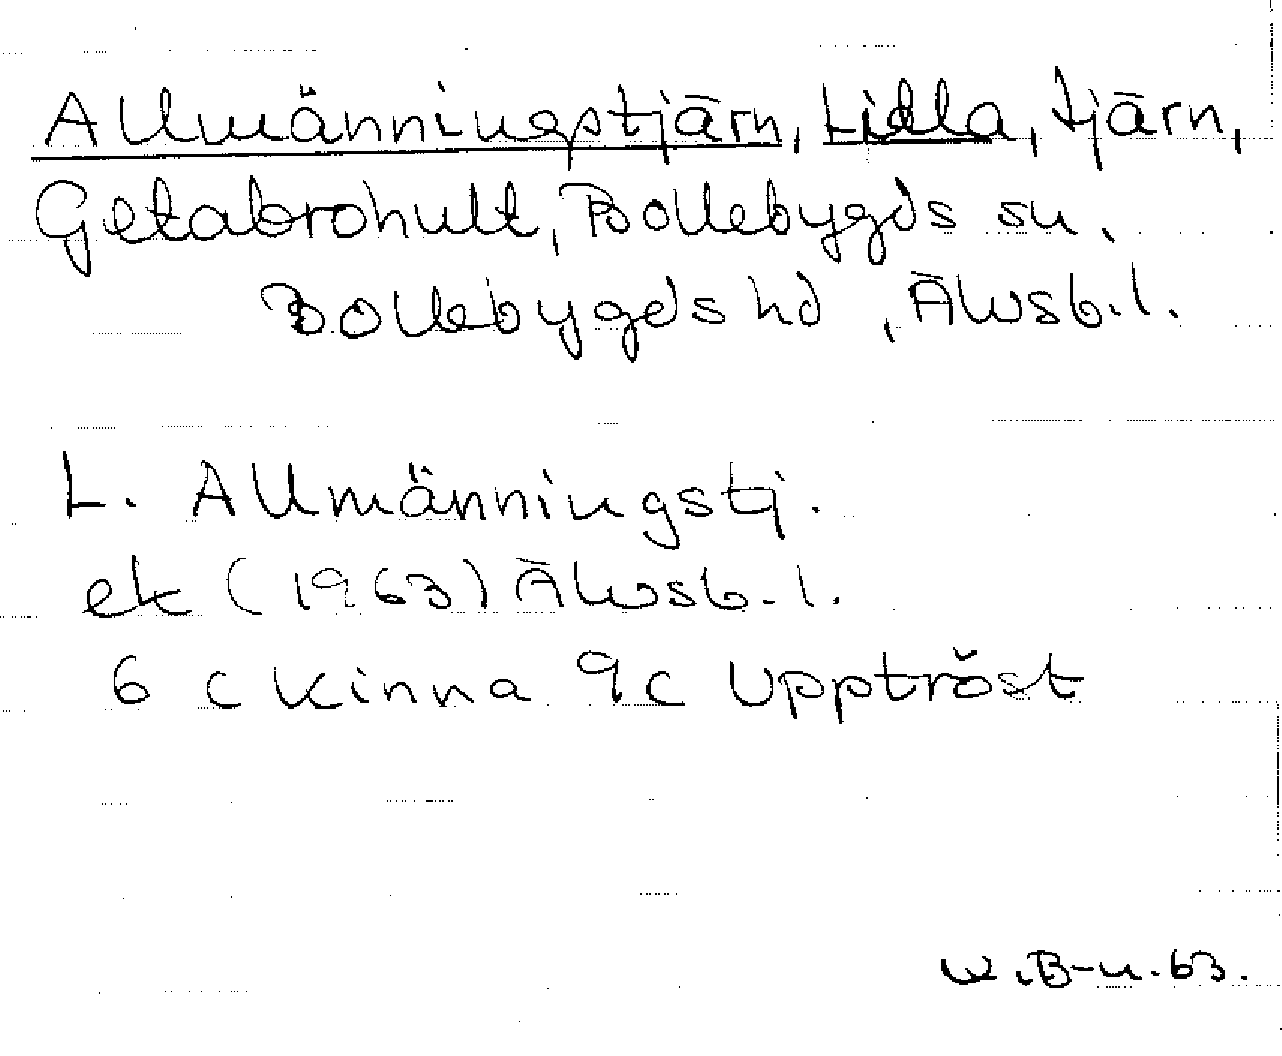 Allmänningstjärn, Lilla, tjärn,
Getabrohult, Bollebygds sn,
Bollebygds hd, Älvsb.l.
L. Allmänningstj.
ek (1963) Älvsb.l.
6 C Kinna 9c Upptröst
W.B-n.63.